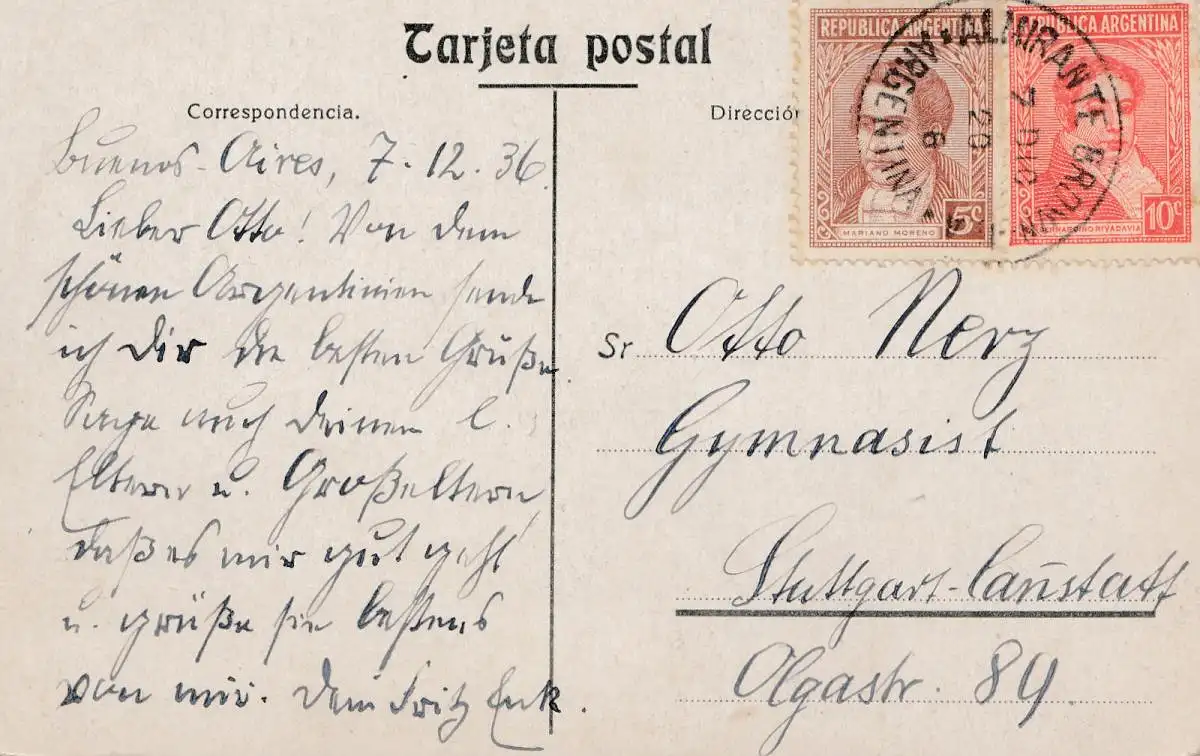 Tarjeta postal
Correspondencia.
Buenos-Aires, 7.12.36.
Lieber Otto! Von dem
schönen Argentinien sende
ich Dir die besten Grüße.
Sage auch Deinen l.
Eltern u. Großeltern,
daß es mir gut geht
u. grüße sie bestens
von mir. Dein Fritz
Dirección
REPUBLICA ARGENTINA
5c
MARIANO MORENO
REPUBLICA ARGENTINA
10c
BERNARDINO RIVADAVIA
ALMIRANTE BROWN
7 DIC
20
8
ARGENTINA
Sr Otto Nerz
Gymnasist
Stuttgart-Canstatt
Olgastr. 89